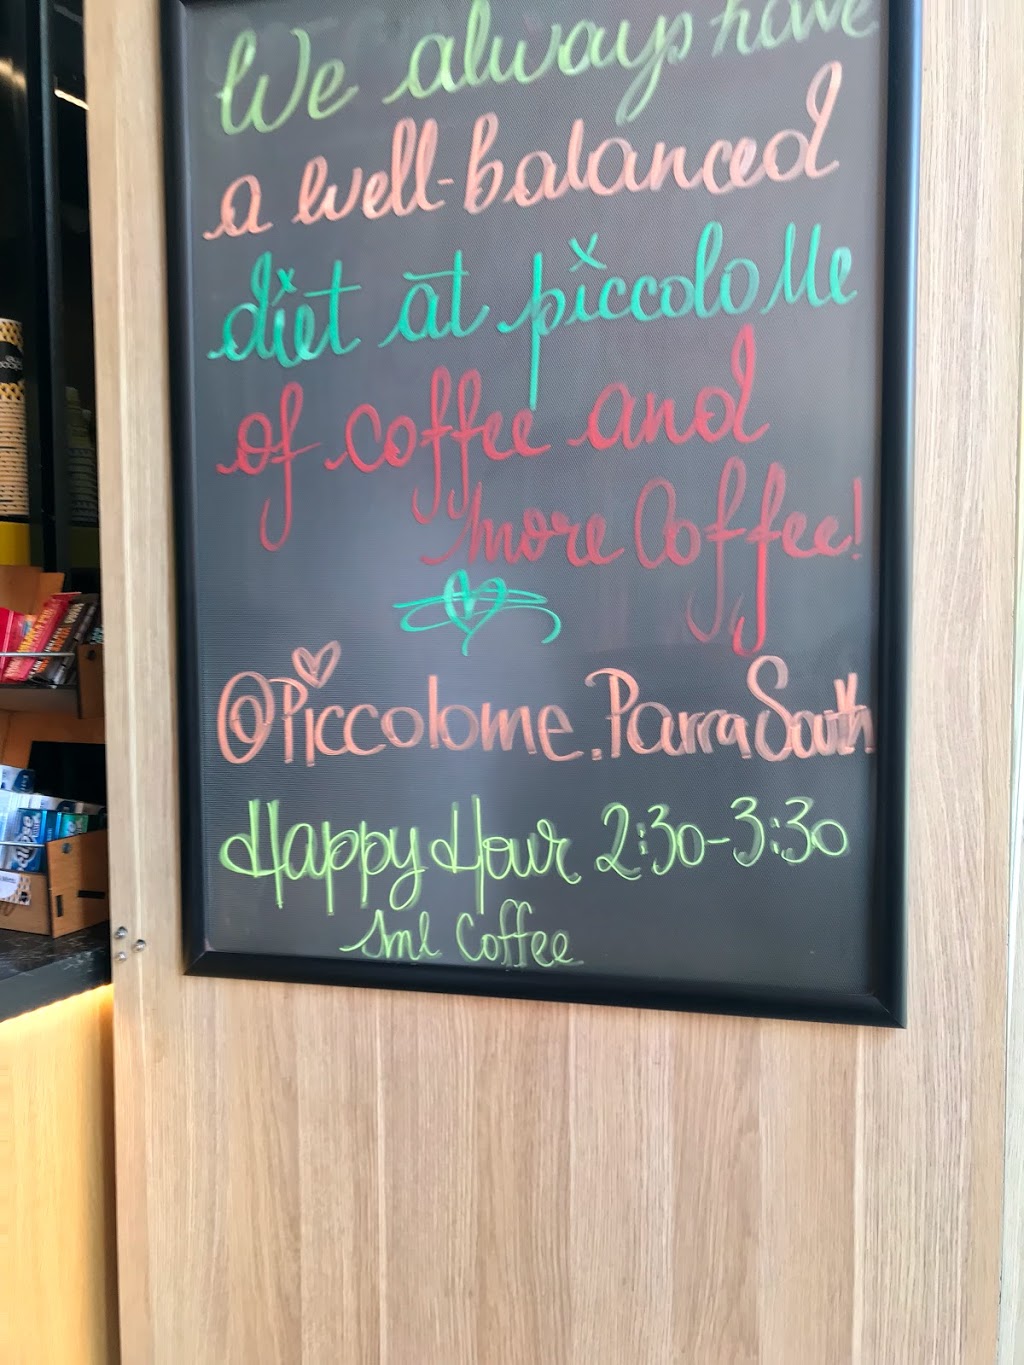 We always have
a well-balanced
diet at piccolo Me
of coffee and
more Coffee!
@Piccolome.ParraSouth
Happy Hour 2:30-3:30
sml Coffee